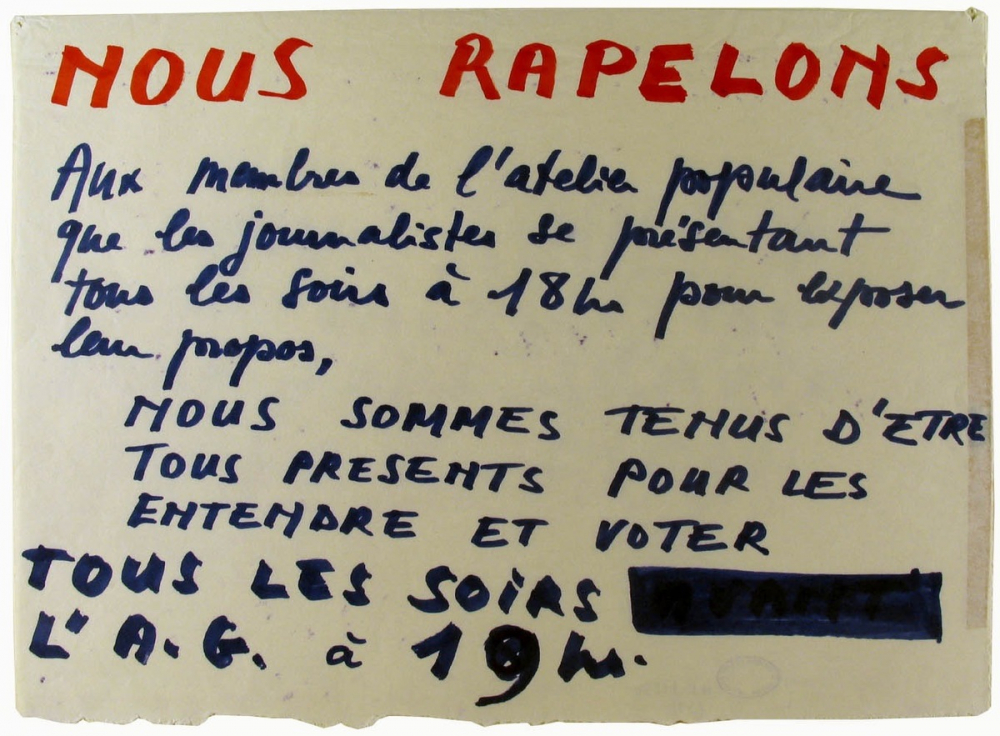 NOUS RAPELONS
Aux membres de l'atelier populaire
que les journalistes se présentant
tous les soirs à 18hr pour exposer
leur propos,
NOUS SOMMES TENUS D'ETRE
TOUS PRESENTS POUR LES
ENTENDRE ET VOTER
TOUS LES SOIRS AVANT
L'A.G. à 19hr.